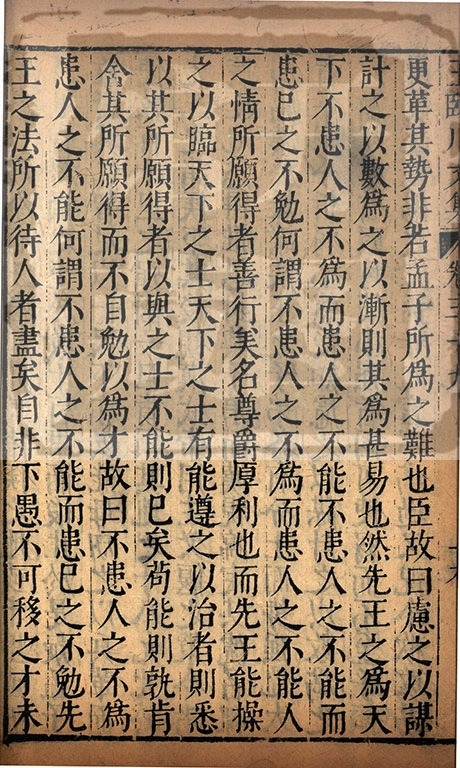 王臨川文集 卷三十九 十六
更革其勢非若孟子所爲之難也臣故曰慮之以謀
計之以數爲之以漸則其爲甚易也然先王之爲天
下不患人之不爲而患人之不能不患人之不能而
患巳之不勉何謂不患人之不爲而患人之不能人
之情所願得者善行美名尊爵厚利也而先王能操
之以臨天下之士天下之士有能遵之以治者則悉
以其所願得者以與之士不能則巳矣苟能則孰肯
舍其所願得而不自勉以爲才故曰不患人之不爲
患人之不能何謂不患人之不能而患巳之不勉先
王之法所以待人者盡矣自非下愚不可移之才未